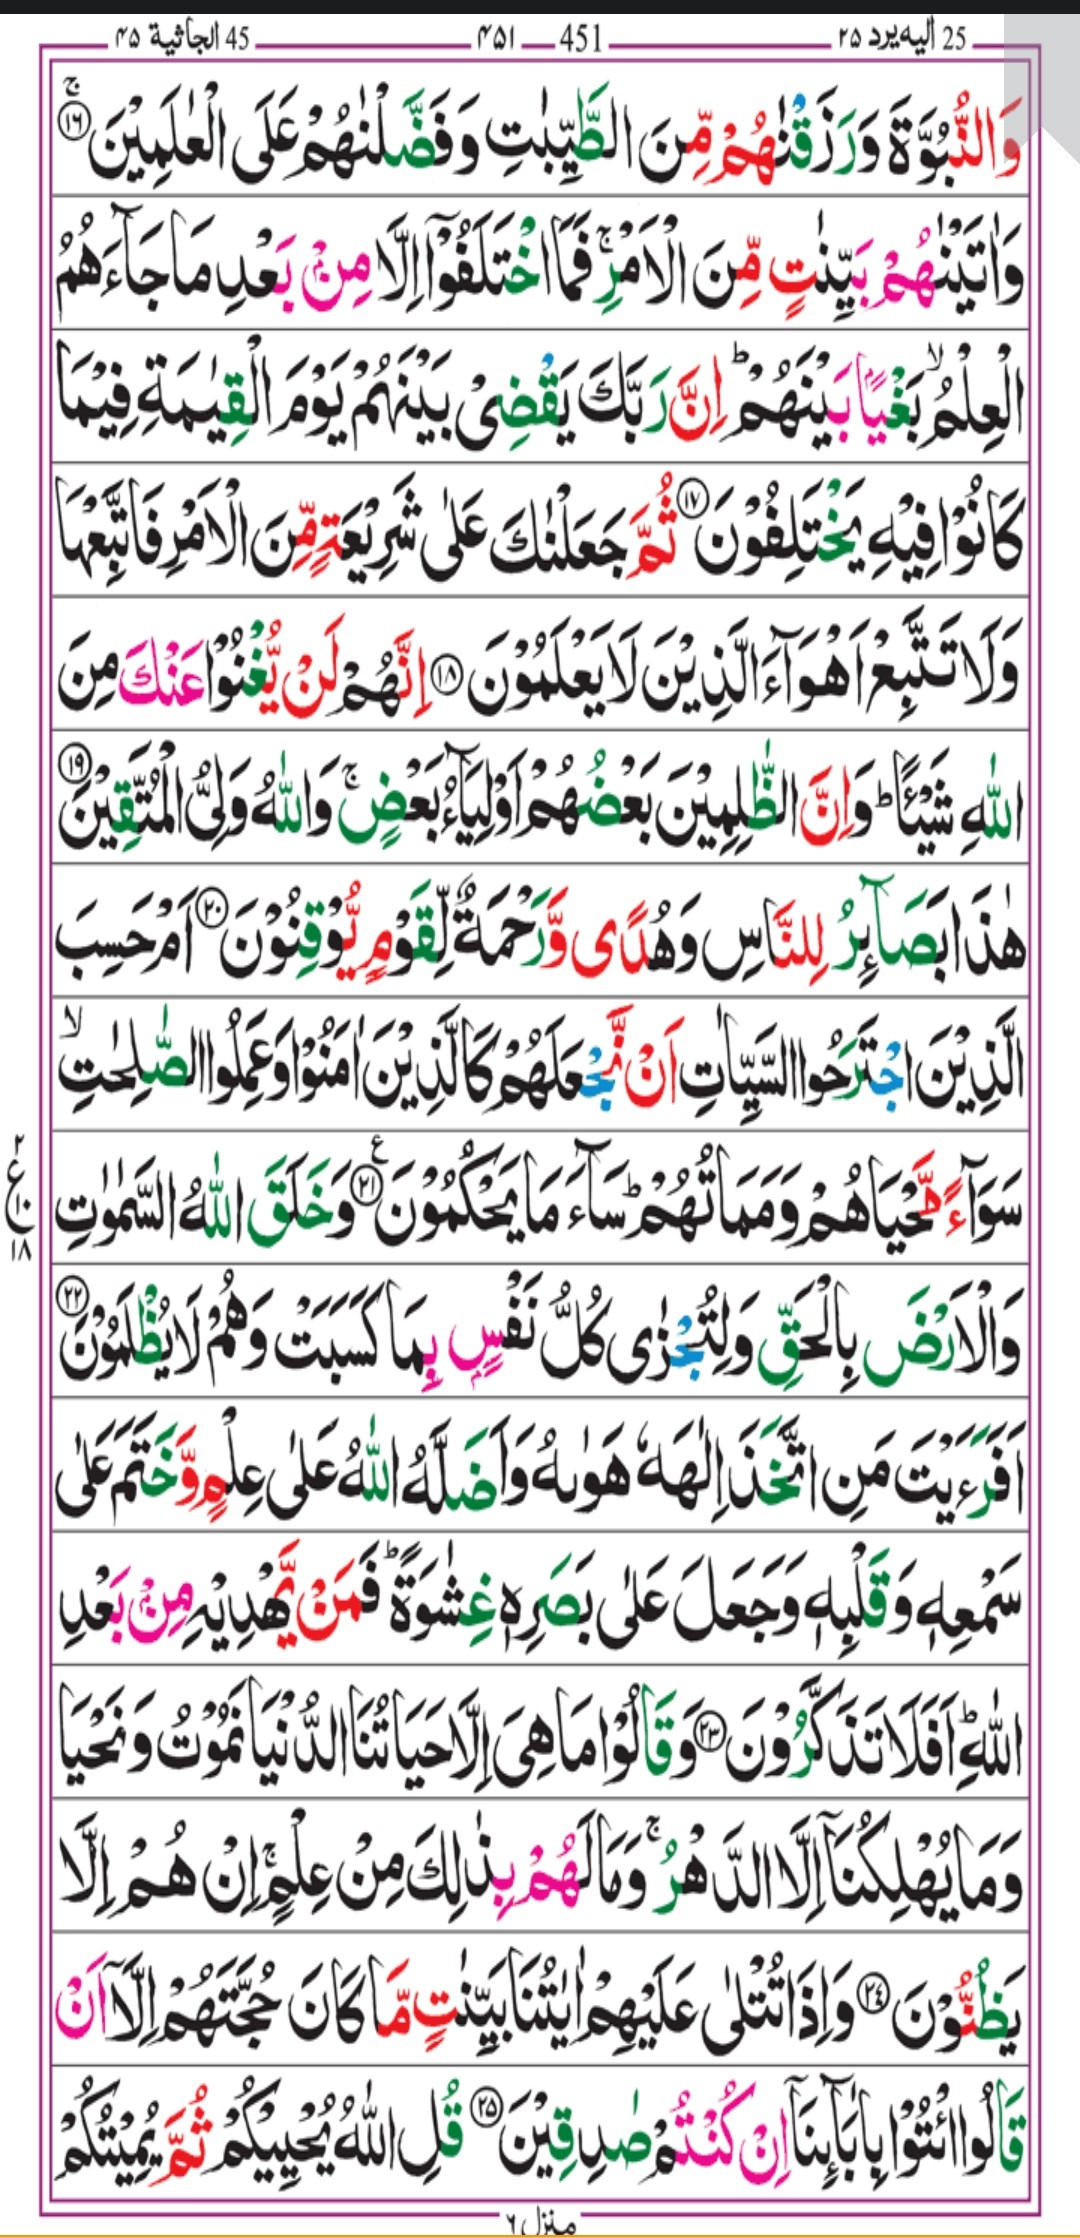 25 اليه يرد ۲۵ 451 ۴۵۱ 45 الجاثية ۴۵
وَالنُّبُوَّةَ وَرَزَقْنٰهُمْ مِّنَ الطَّيِّبٰتِ وَفَضَّلْنٰهُمْ عَلَى الْعٰلَمِيْنَ ۚ ﴿۱۶﴾
وَاٰتَيْنٰهُمْ بَيِّنٰتٍ مِّنَ الْاَمْرِ ۚ فَمَا اخْتَلَفُوْۤا اِلَّا مِنْۢ بَعْدِ مَا جَآءَهُمُ
الْعِلْمُ ۙ بَغْيًۢا بَيْنَهُمْ ؕ اِنَّ رَبَّكَ يَقْضِىْ بَيْنَهُمْ يَوْمَ الْقِيٰمَةِ فِيْمَا
كَانُوْا فِيْهِ يَخْتَلِفُوْنَ ﴿۱۷﴾ ثُمَّ جَعَلْنٰكَ عَلٰى شَرِيْعَةٍ مِّنَ الْاَمْرِ فَاتَّبِعْهَا
وَلَا تَتَّبِعْ اَهْوَآءَ الَّذِيْنَ لَا يَعْلَمُوْنَ ﴿۱۸﴾ اِنَّهُمْ لَنْ يُّغْنُوْا عَنْكَ مِنَ
اللّٰهِ شَيْــًٔا ؕ وَاِنَّ الظّٰلِمِيْنَ بَعْضُهُمْ اَوْلِيَآءُ بَعْضٍ ۚ وَاللّٰهُ وَلِىُّ الْمُتَّقِيْنَ ﴿۱۹﴾
هٰذَا بَصَآئِرُ لِلنَّاسِ وَهُدًى وَّرَحْمَةٌ لِّقَوْمٍ يُّوْقِنُوْنَ ﴿۲۰﴾ اَمْ حَسِبَ
الَّذِيْنَ اجْتَرَحُوا السَّيِّاٰتِ اَنْ نَّجْعَلَهُمْ كَالَّذِيْنَ اٰمَنُوْا وَعَمِلُوا الصّٰلِحٰتِ ۙ
سَوَآءً مَّحْيَاهُمْ وَمَمَاتُهُمْ ؕ سَآءَ مَا يَحْكُمُوْنَ ﴿۲۱﴾ ع وَخَلَقَ اللّٰهُ السَّمٰوٰتِ
۲ ع ۱۰ ۱۸
وَالْاَرْضَ بِالْحَقِّ وَلِتُجْزٰى كُلُّ نَفْسٍۭ بِمَا كَسَبَتْ وَهُمْ لَا يُظْلَمُوْنَ ﴿۲۲﴾
اَفَرَءَيْتَ مَنِ اتَّخَذَ اِلٰهَهٗ هَوٰىهُ وَاَضَلَّهُ اللّٰهُ عَلٰى عِلْمٍ وَّخَتَمَ عَلٰى
سَمْعِهٖ وَقَلْبِهٖ وَجَعَلَ عَلٰى بَصَرِهٖ غِشٰوَةً ؕ فَمَنْ يَّهْدِيْهِ مِنْۢ بَعْدِ
اللّٰهِ ؕ اَفَلَا تَذَكَّرُوْنَ ﴿۲۳﴾ وَقَالُوْا مَا هِىَ اِلَّا حَيَاتُنَا الدُّنْيَا نَمُوْتُ وَنَحْيَا
وَمَا يُهْلِكُنَاۤ اِلَّا الدَّهْرُ ۚ وَمَا لَهُمْ بِذٰلِكَ مِنْ عِلْمٍ ۚ اِنْ هُمْ اِلَّا
يَظُنُّوْنَ ﴿۲۴﴾ وَاِذَا تُتْلٰى عَلَيْهِمْ اٰيٰتُنَا بَيِّنٰتٍ مَّا كَانَ حُجَّتَهُمْ اِلَّاۤ اَنْ
قَالُوا ائْتُوْا بِاٰبَآئِنَاۤ اِنْ كُنْتُمْ صٰدِقِيْنَ ﴿۲۵﴾ قُلِ اللّٰهُ يُحْيِيْكُمْ ثُمَّ يُمِيْتُكُمْ
منزل ٦